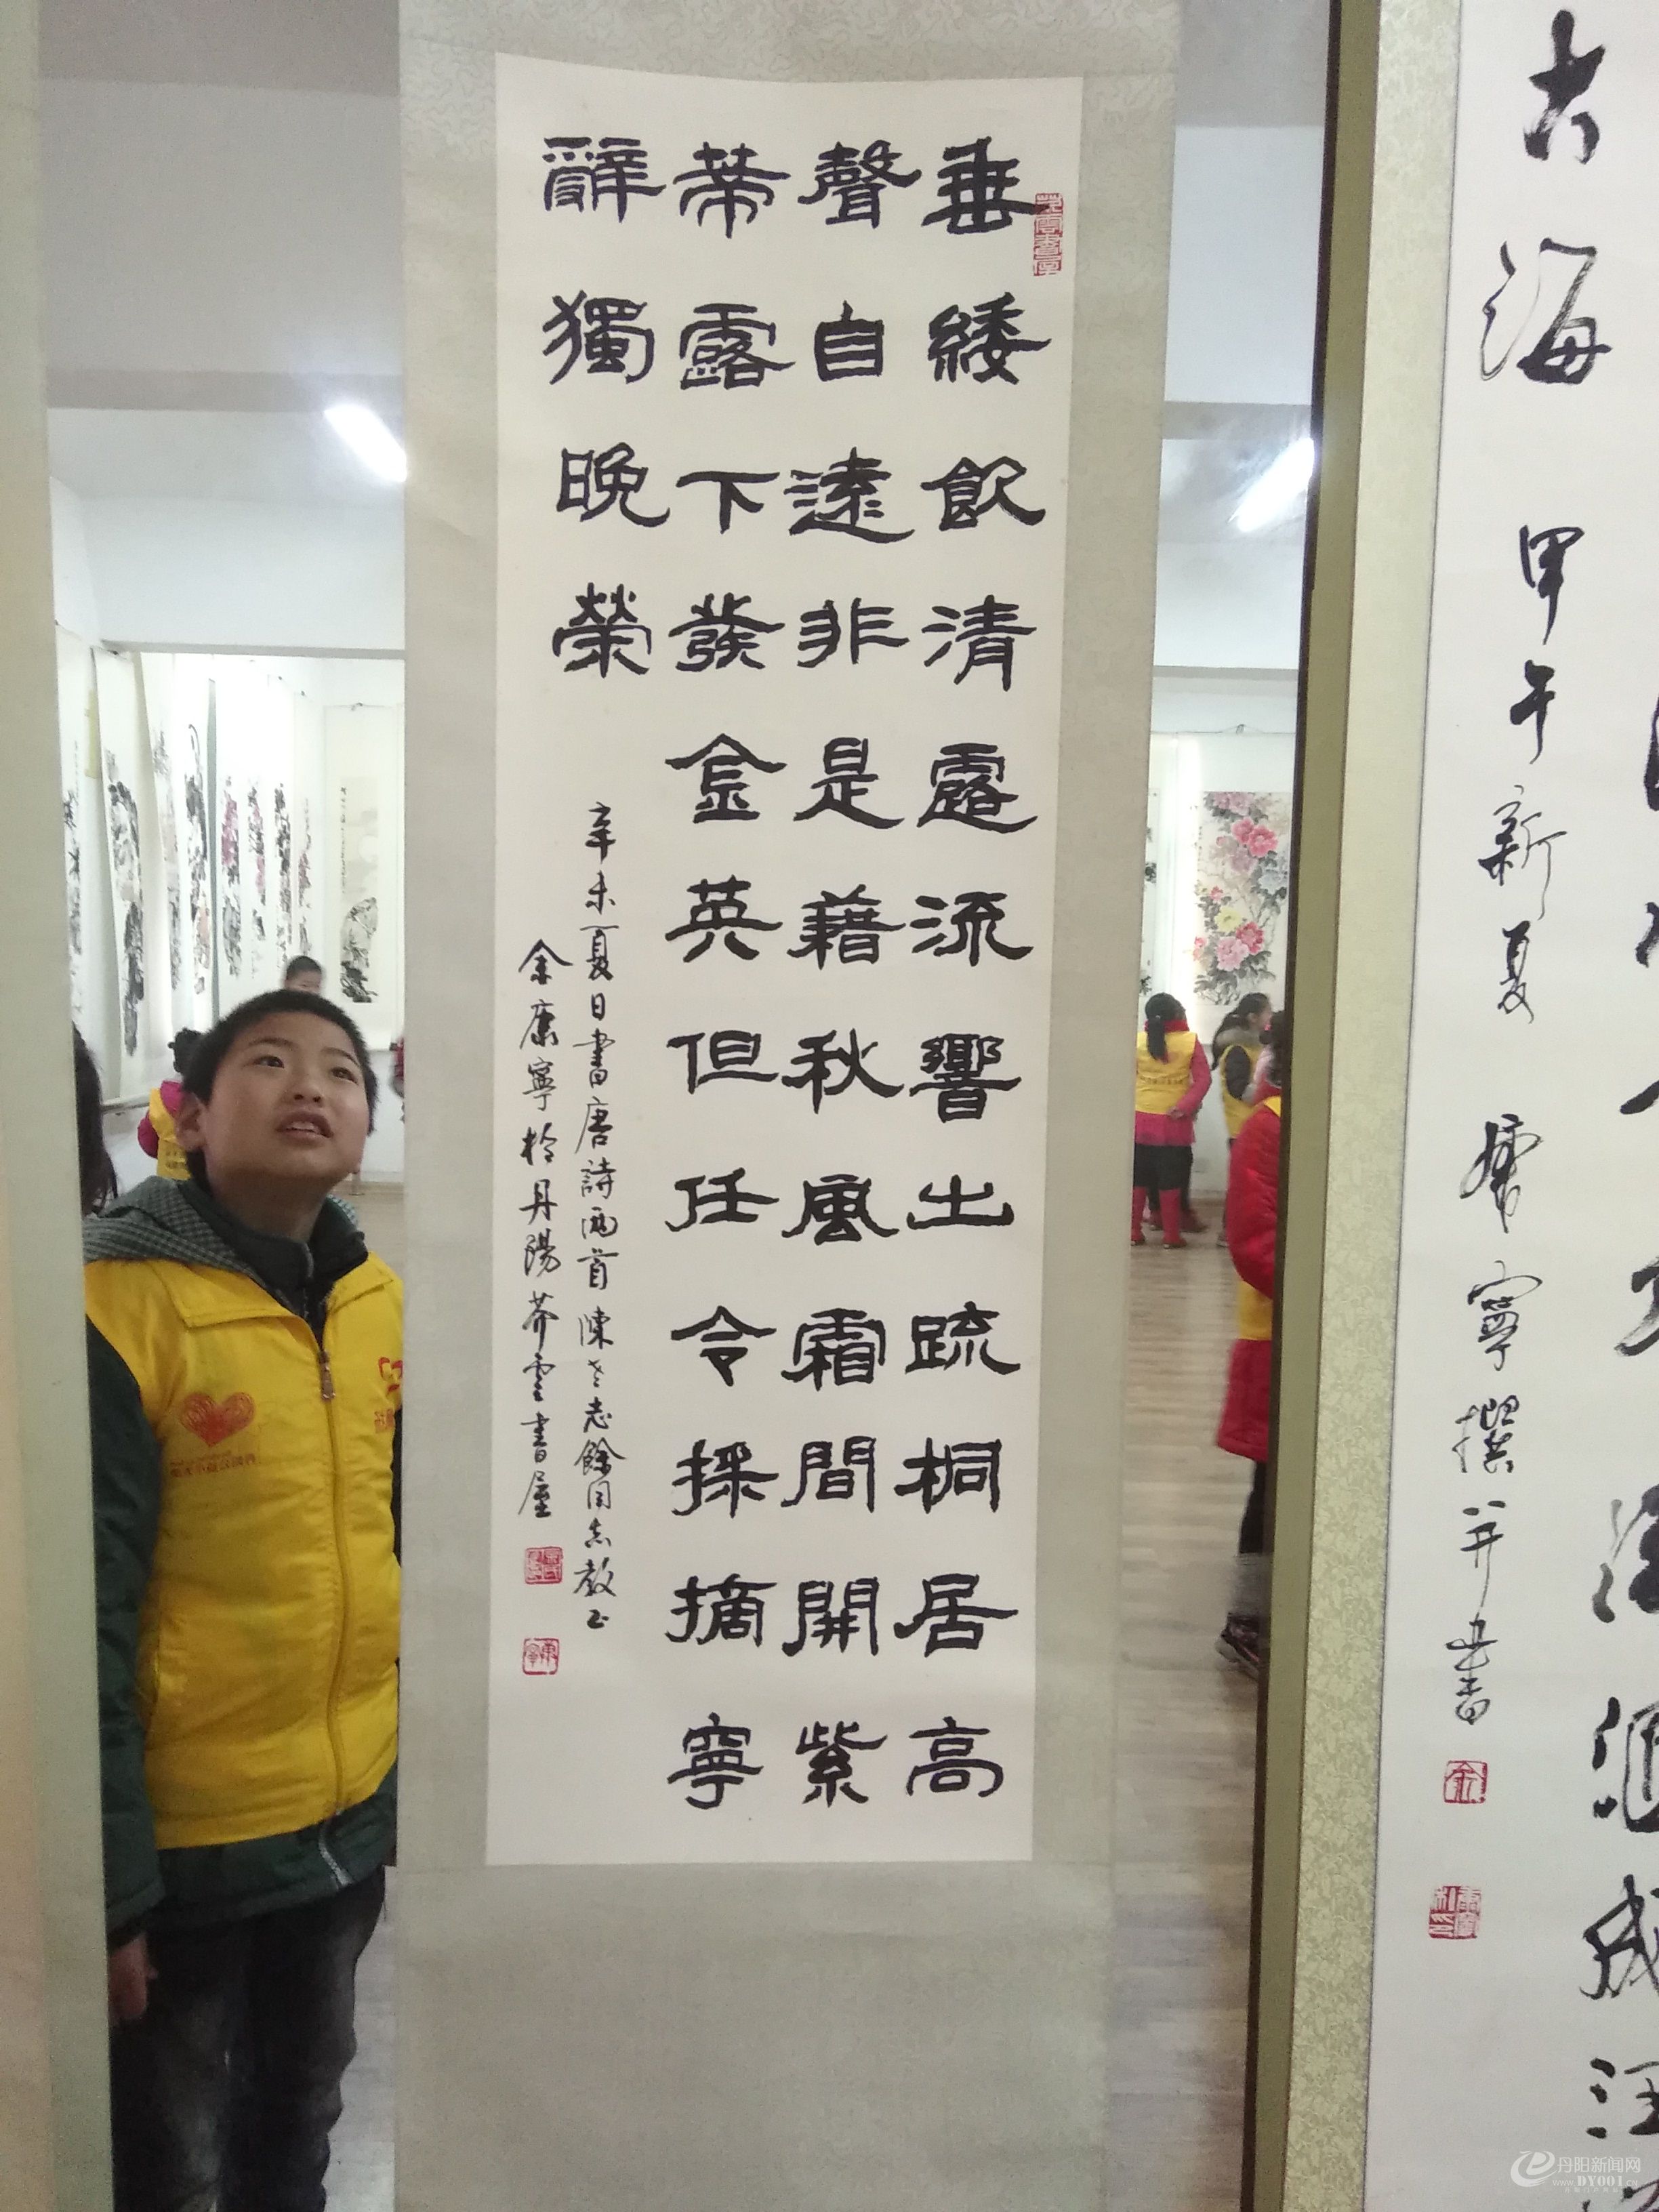 垂緌飲清露流響出疏桐居高
聲自遠非是藉秋風霜間開紫
蒂露下發金英但任令採摘寧
辭獨晚榮
辛未夏日書唐詩兩首陳老志餘同志教正
余康寧於丹陽芥雲書屋
大海
甲午新夏 康寧撰并書
丹阳新闻网
www.DY001.cn